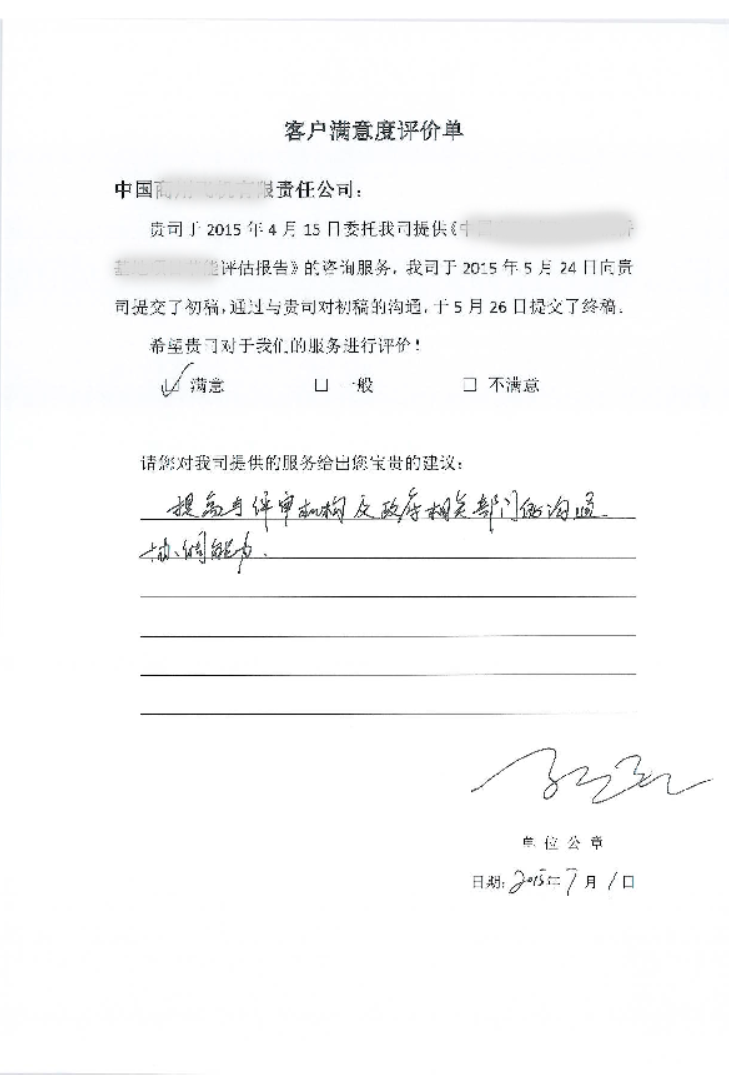 客户满意度评价单
中国 限责任公司：
贵司于 2015 年 4 月 15 日委托我司提供《中
评估报告》的咨询服务，我司于 2015 年 5 月 24 日向贵
司提交了初稿，通过与贵司对初稿的沟通，于 5 月 26 日提交了终稿。
希望贵司对于我们的服务进行评价！
☑ 满意 □ 一般 □ 不满意
请您对我司提供的服务给出您宝贵的建议：
提高与评审机构及政府相关部门的沟通、
协调能力.
单位公章
日期：2015年7月1日